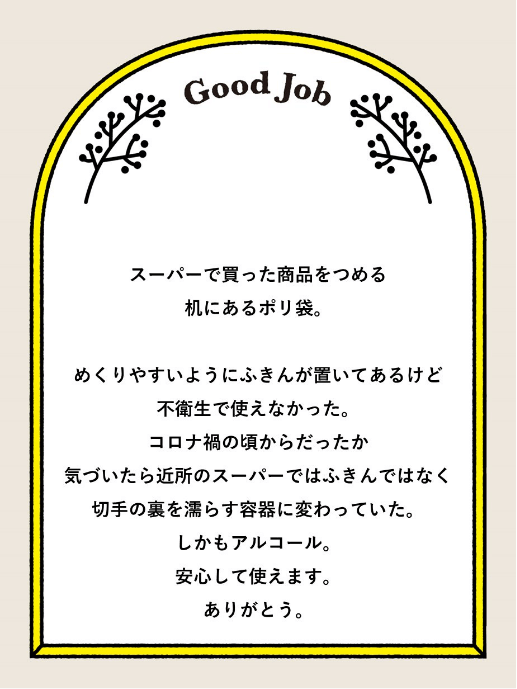 Good Job
スーパーで買った商品をつめる
机にあるポリ袋。
めくりやすいようにふきんが置いてあるけど
不衛生で使えなかった。
コロナ禍の頃からだったか
気づいたら近所のスーパーではふきんではなく
切手の裏を濡らす容器に変わっていた。
しかもアルコール。
安心して使えます。
ありがとう。